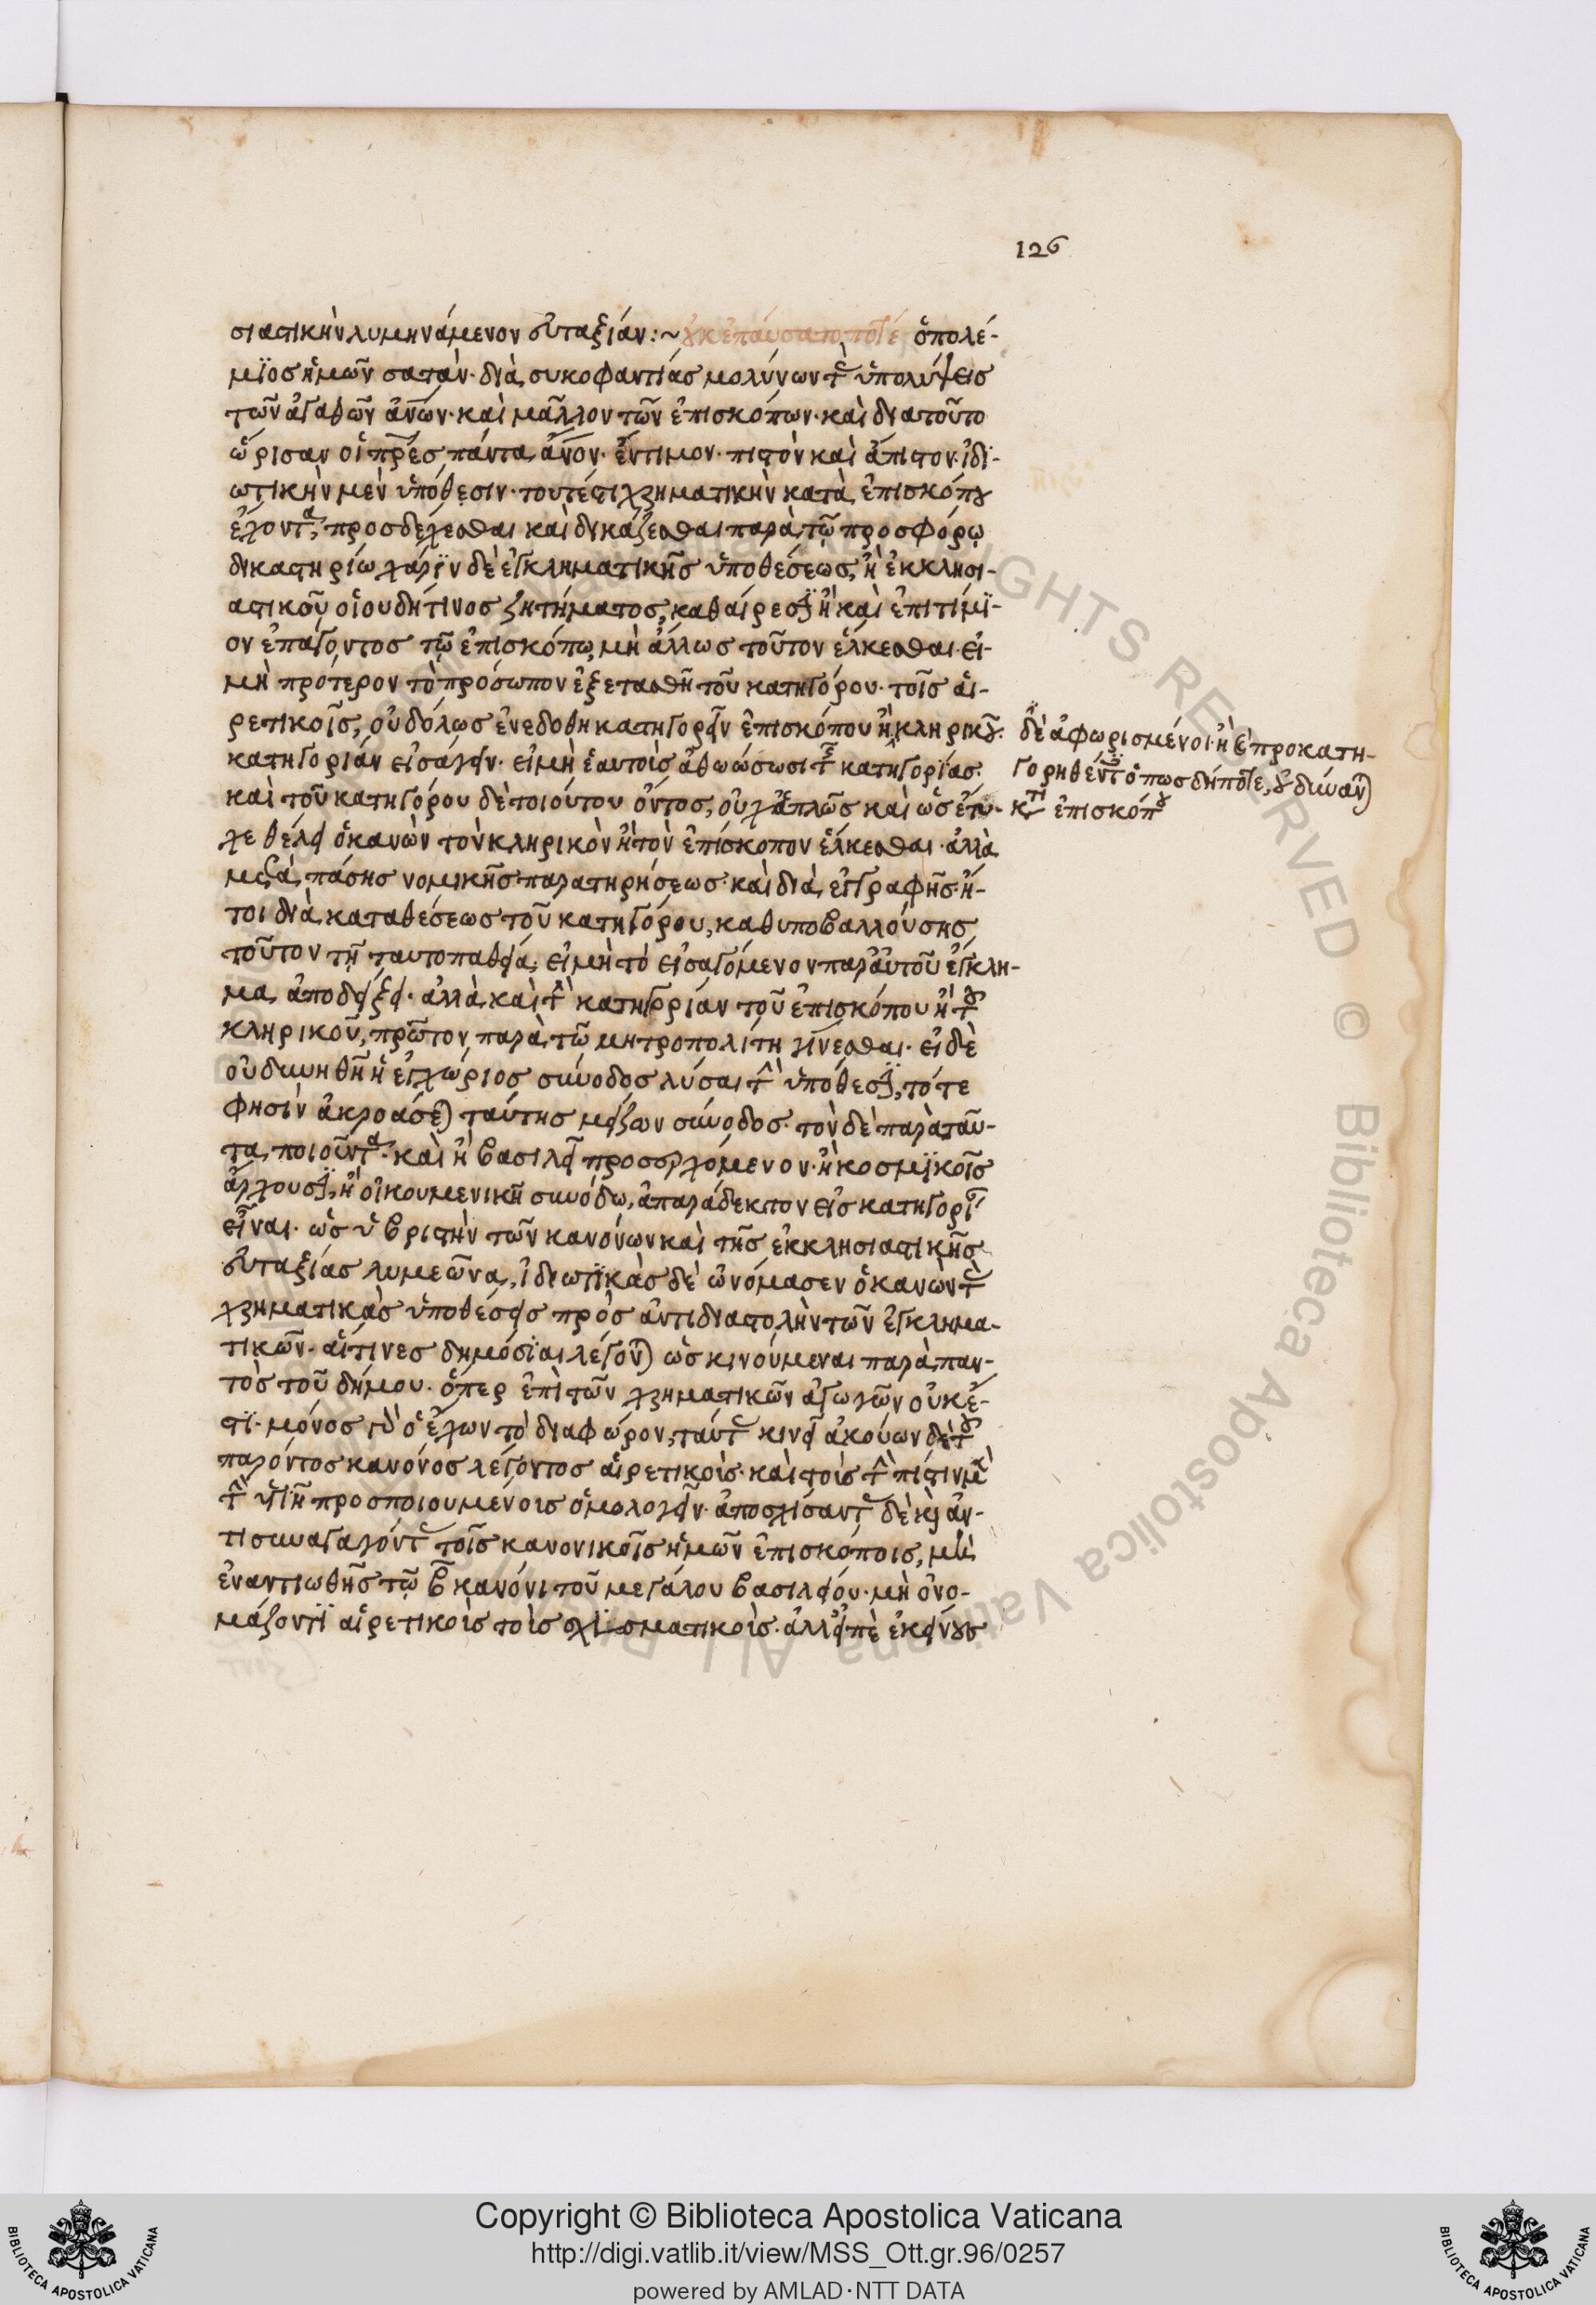 126
σιαστικὴν λυμηνάμενον εὐταξίαν :~ οὐκ ἐπαύσατο ποτὲ ὁ πολέ-
μϊος ἡμῶν σατὰν· διὰ συκοφαντίας μολύνων τὰς ὑπολύψεις
τῶν ἀγαθῶν ἀνων· καὶ μᾶλλον τῶν ἐπισκόπων· καὶ διατοῦτο
ὥρισαν οἱ πρες πάντα ἀνον· ἔντιμον· πιστὸν καὶ ἄπιστον· ἰδϊ-
ωτικὴν μὲν ὑπόθεσιν· τουτέστι χρηματικὴν κατὰ ἐπισκόπου
ἔχοντα, προσδέχεσθαι καὶ δικάζεσθαι παρὰ τῷ προσφόρῳ
δικαστηρίω χάριν δὲ ἐγκληματικῆς ὑποθέσεως, ἢ ἐκκλησι-
αστικοῦ οἱουδήτινος ζητήματος, καθαίρεσιν ἢ καὶ ἐπιτίμϊ-
ον ἐπάγοντος τῷ ἐπισκόπω, μὴ ἄλλως τοῦτον ἕλκεσθαι· εἰ-
μὴ πρότερον τὸ πρόσωπον ἐξετασθῆ τοῦ κατηγόρου· τοῖς αἱ-
ρετικοῖς, οὐδόλως ἐνεδόθη κατηγορεῖν ἐπισκόπου ἢ κληρικοῦ·
κατηγορίαν εἰσάγειν· εἰμὴ ἑαυτοὶς ἀθωώσωσι τῆς κατηγορίας·
καὶ τοῦ κατηγόρου δὲ τοιούτου ὄντος, οὐχ ἁπλῶς καὶ ὡς ἔτυ-
χε θέλει ὁ κανὼν τὸν κληρικὸν ἢ τὸν ἐπίσκοπον ἕλκεσθαι· ἀλλὰ
μετὰ πάσης νομικῆς παρατηρήσεως· καὶ διὰ ἐγγραφῆς ἤ-
τοι διὰ καταθέσεως τοῦ κατηγόρου, καθυποβαλλούσης
τοῦτον τῆ ταυτοπαθεία· εἰμὴ τὸ εἰσαγόμενον παρ' αὐτοῦ ἔγκλη-
μα ἀποδείξει· ἀλλὰ καὶ τὴν κατηγορίαν τοῦ ἐπισκόπου ἢ τοῦ
κληρικοῦ, πρῶτον παρὰ τῷ μητροπολίτη γίνεσθαι· εἰ δὲ
οὐ δυνηθῆ ἡ ἐγχώριος σύνοδος λύσαι τὴν ὑπόθεσιν, τότε
φησὶν ἀκροάσεται ταύτης μείζων σύνοδος· τὸν δὲ παρὰ ταῦ-
τα ποιοῦντα· καὶ ἢ βασιλεῖ προσερχόμενον· ἢ κοσμϊκοῖς
ἄρχουσιν, ἢ οἰκουμενικῆ συνόδω, ἀπαράδεκτον εἰς κατηγορίαν
εἶναι· ὡς ὑβριστὴν τῶν κανόνων καὶ τῆς ἐκκλησιαστικῆς
εὐταξίας λυμεῶνα, ἰδιωτϊκὰς δὲ ὠνόμασεν ὁ κανὼν τὰς
χρηματικὰς ὑποθέσεις πρὸς ἀντιδιαστολὴν τῶν ἐγκλημα-
τικῶν· αἵτινες δημόσϊαι λέγονται ὡς κινούμεναι παρὰ παν-
τὸς τοῦ δήμου· ὅπερ ἐπὶ τῶν χρηματικῶν ἀγωγῶν οὐκ ἔ-
στϊ· μόνος γὰρ ὁ ἔχων τὸ διαφέρον, ταύτας κινεῖ ἀκούων δὲ τοῦ
παρόντος κανόνος λέγοντος αἱρετικοὶς· καὶ τοὶς τὴν πίστιν μὲν
τὴν ὑγιῆ προσποιουμένοις ὁμολογεῖν· ἀποσχίσαντας δὲ καὶ ἀν-
τισυναγαγόντας τοῖς κανονικοῖς ἡμῶν ἐπισκόποις, μὴ
ἐναντιωθῆς τῷ β κανόνι τοῦ μεγάλου βασιλείου· μὴ ὀνο-
μάζοντϊ αἱρετικοὶς τοὶς σχϊσματικοὶς· ἀλλ' εἰπὲ ἐκείνους
οἱ δὲ ἀφωρισμένοι ἢ προκατη-
γορηθέντες ὁπωσδήποτε, οὐ δύνανται
κατὰ ἐπισκόπου
Copyright © Biblioteca Apostolica Vaticana
http://digi.vatlib.it/view/MSS_Ott.gr.96/0257
powered by AMLAD·NTT DATA